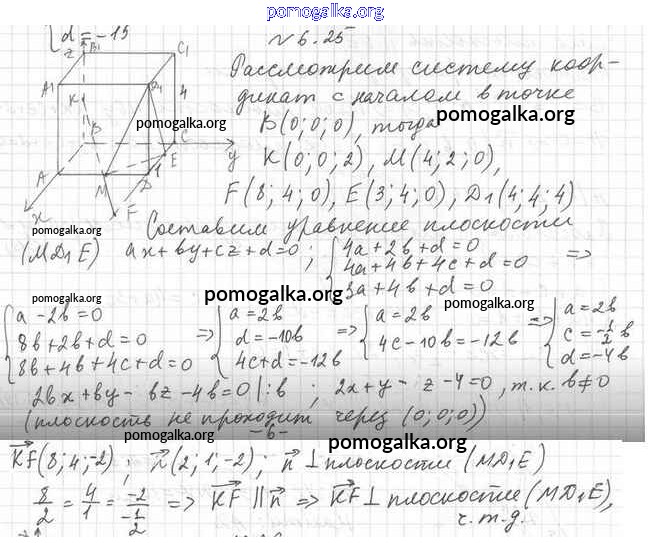 pomogalka.org
d = -15
№ 6.25
Рассмотрим систему коор-
динат с началом в точке
pomogalka.org
B(0; 0; 0), тогда
pomogalka.org
K(0; 0; 2), M(4; 2; 0),
F(8; 4; 0), E(3; 4; 0), D₁(4; 4; 4)
z B₁ C₁ A₁ K D₁ 4 B C y E A M D 1 F x
pomogalka.org
Составим уравнение плоскости
(MD₁E) ax + by + cz + d = 0 ; { 4a + 2b + d = 0
4a + 4b + 4c + d = 0 =>
3a + 4b + d = 0
pomogalka.org
pomogalka.org
pomogalka.org
{ a - 2b = 0
8b + 2b + d = 0
8b + 4b + 4c + d = 0
=> { a = 2b
d = -10b
4c + d = -12b
=> { a = 2b
4c - 10b = -12b
=> { a = 2b
c = -1/2 b
d = -4b
2bx + by - bz - 4b = 0 |: b ; 2x + y - z - 4 = 0, т.к. b ≠ 0
(плоскость не проходит через (0; 0; 0))
pomogalka.org
-6-
pomogalka.org
KF(8; 4; -2) ; n(2; 1; -2) ; n ⊥ плоскости (MD₁E)
8/2 = 4/1 = -2/-1/2 => KF ∥ n => KF ⊥ плоскости (MD₁E),
ч.т.д.
pomogalka.org